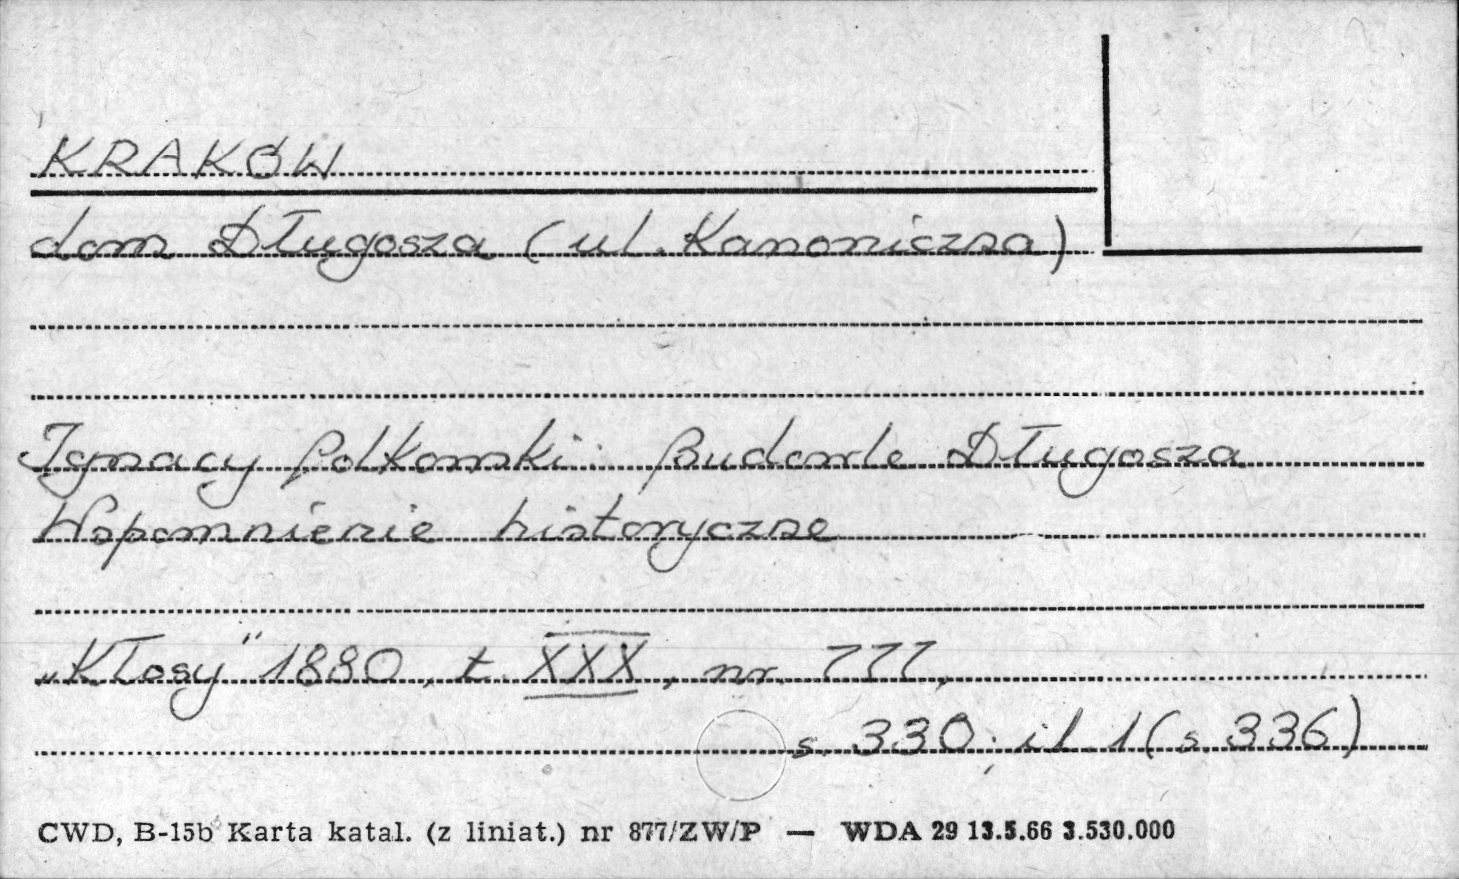 KRAKÓW
dom Długosza (ul. Kanoniczna)
Ignacy Polkowski: Budowle Długosza
Wspomnienie historyczne
„Kłosy" 1880, t. XXX, nr. 777,
s. 330; il. 1 (s. 336)
CWD, B-15b Karta katal. (z liniat.) nr 877/ZW/P — WDA 29 13.5.66 3.530.000